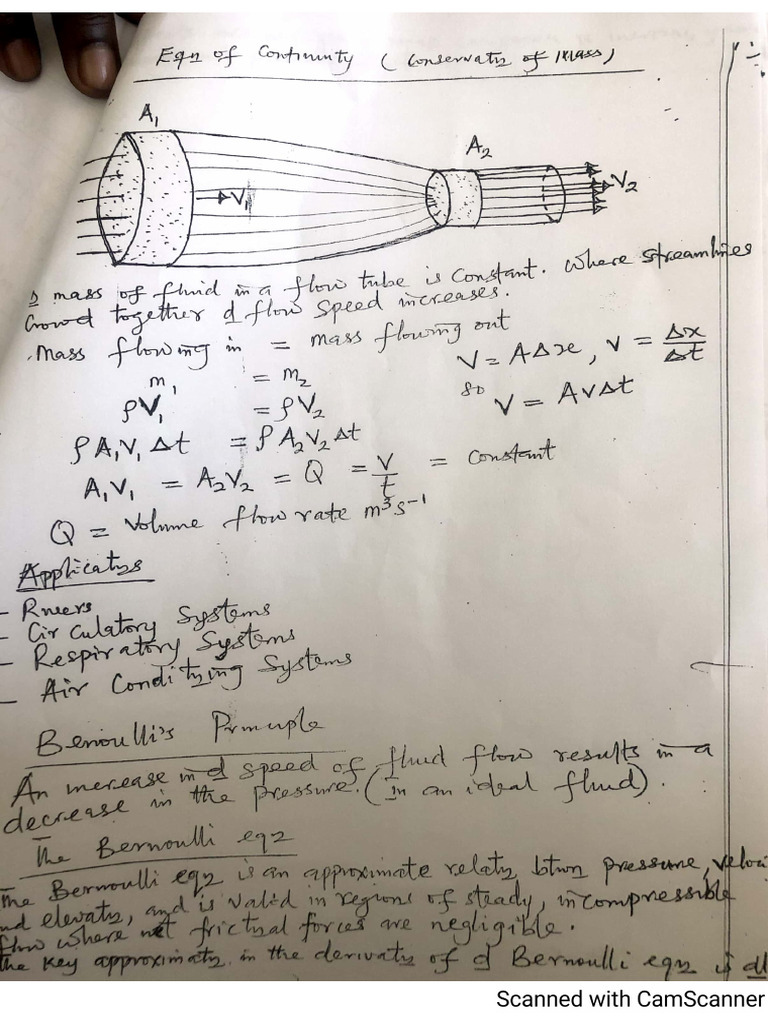 Eqn of Continuity (Conservatn of Mass)
A1
A2
V1
V2
D mass of fluid in a flow tube is constant. Where streamlines
Crowd together d flow speed increases.
Mass flowing in = mass flowing out
V = AΔx, v = Δx/Δt
m1 = m2
so V = AvΔt
ρV1 = ρV2
ρA1V1Δt = ρA2V2Δt
A1V1 = A2V2 = Q = V/t = constant
Q = Volume flow rate m³s⁻¹
Applicatns
- Rivers
- Circulatory Systems
- Respiratory Systems
- Air Conditning Systems
Bernoulli's Principle
An increase in d speed of fluid flow results in a
decrease in the pressure. (In an ideal fluid).
The Bernoulli eqn
The Bernoulli eqn is an approximate relatn btwn pressure, veloci
nd elevatn, and is valid in regions of steady, incompressible
flow where net frictnal forces are negligible.
The key approximatn in the derivatn of d Bernoulli eqn is
Scanned with CamScanner